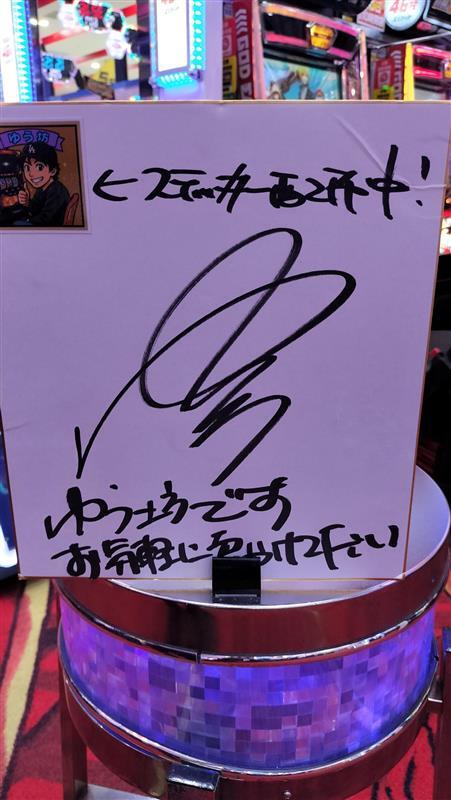 ゆう坊
←ステッカー配布中!
ゆう坊です
お気軽にお声がけ下さい
GOD